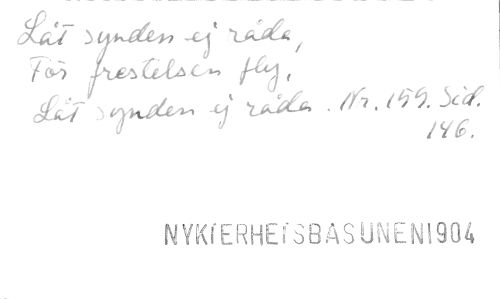 Låt synden ej råda,
För frestelsen fly,
Låt synden ej råda. Nr. 159. Sid.
146.
NYKTERHETSBASUNEN 1904